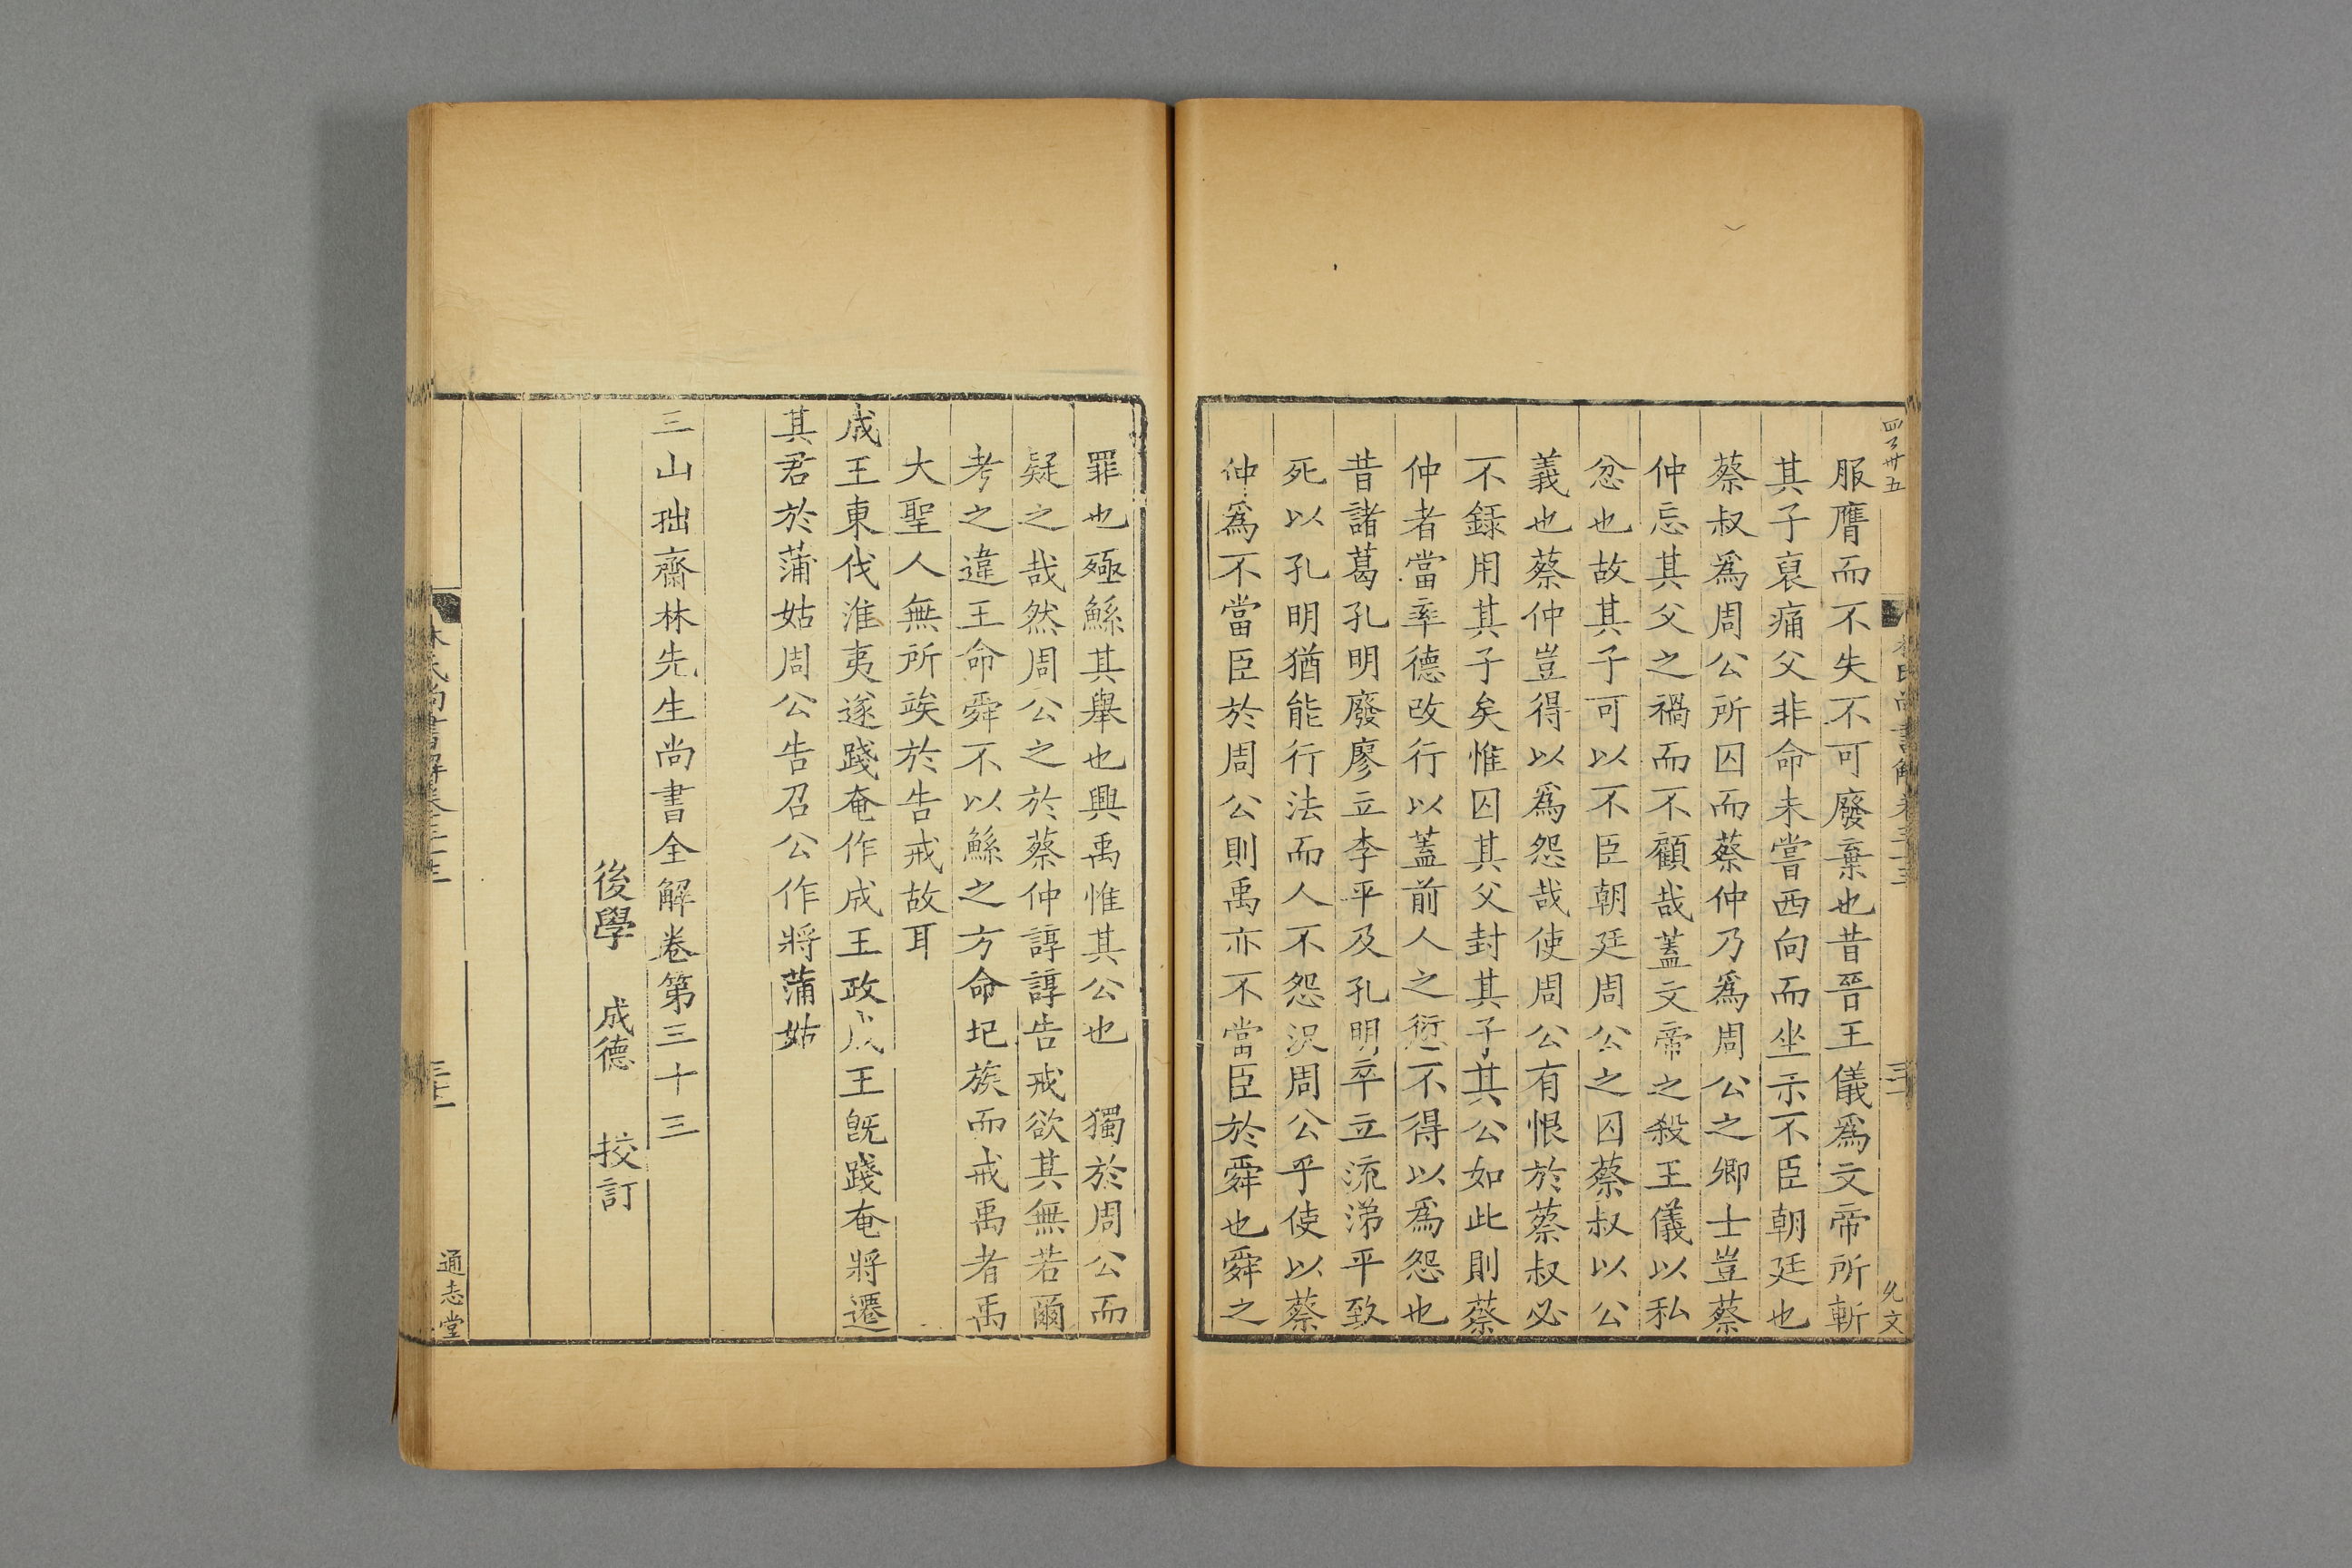 四百卅五
林氏尚書解卷三十三
久文
服膺而不失不可廢棄也昔晉王儀爲文帝所斬
其子裒痛父非命未嘗西向而坐示不臣朝廷也
蔡叔爲周公所囚而蔡仲乃爲周公之卿士豈蔡
仲忘其父之禍而不顧哉蓋文帝之殺王儀以私
忿也故其子可以不臣朝廷周公之囚蔡叔以公
義也蔡仲豈得以爲怨哉使周公有恨於蔡叔必
不録用其子矣惟囚其父封其子其公如此則蔡
仲者當率德改行以蓋前人之愆不得以爲怨也
昔諸葛孔明廢廖立李平及孔明卒立流涕平致
死以孔明猶能行法而人不怨況周公乎使以蔡
仲爲不當臣於周公則禹亦不當臣於舜也舜之
罪也殛鯀其舉也興禹惟其公也 獨於周公而
疑之哉然周公之於蔡仲諄諄告戒欲其無若爾
考之違王命舜不以鯀之方命圯族而戒禹者禹
大聖人無所竢於告戒故耳
成王東伐淮夷遂踐奄作成王政成王旣踐奄將遷
其君於蒲姑周公告召公作將蒲姑
三山拙齋林先生尚書全解卷第三十三
後學 成德 挍訂
林氏尚書解卷三十三
通志堂